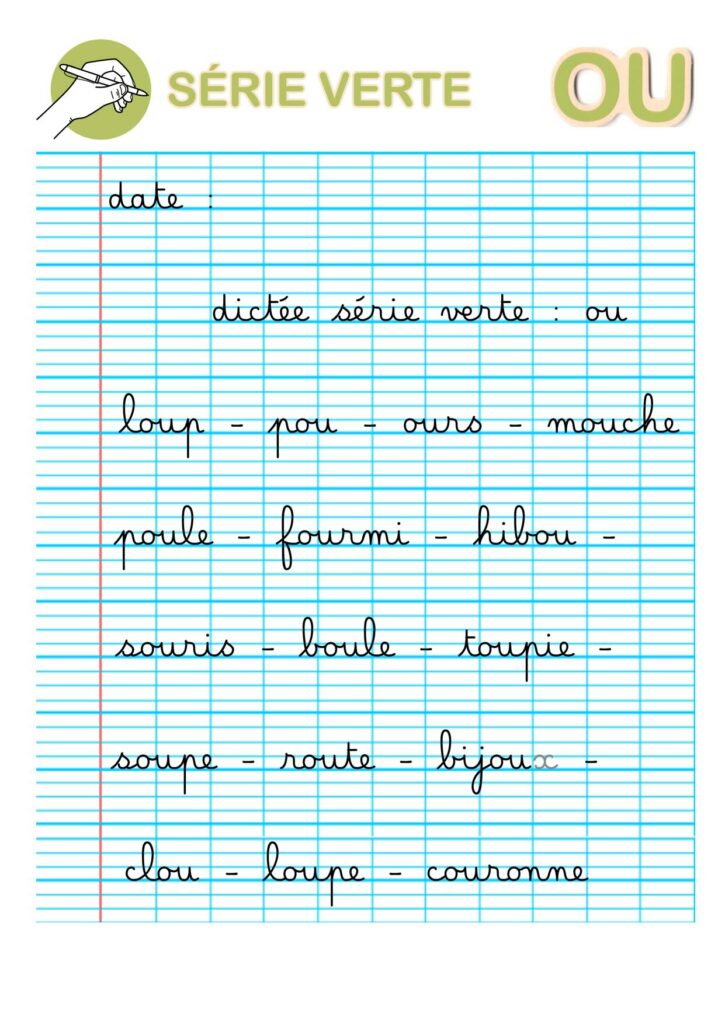 SÉRIE VERTE OU
date :
dictée série verte : ou
loup - pou - ours - mouche
poule - fourmi - hibou -
souris - boule - toupie -
soupe - route - bijoux -
clou - loupe - couronne